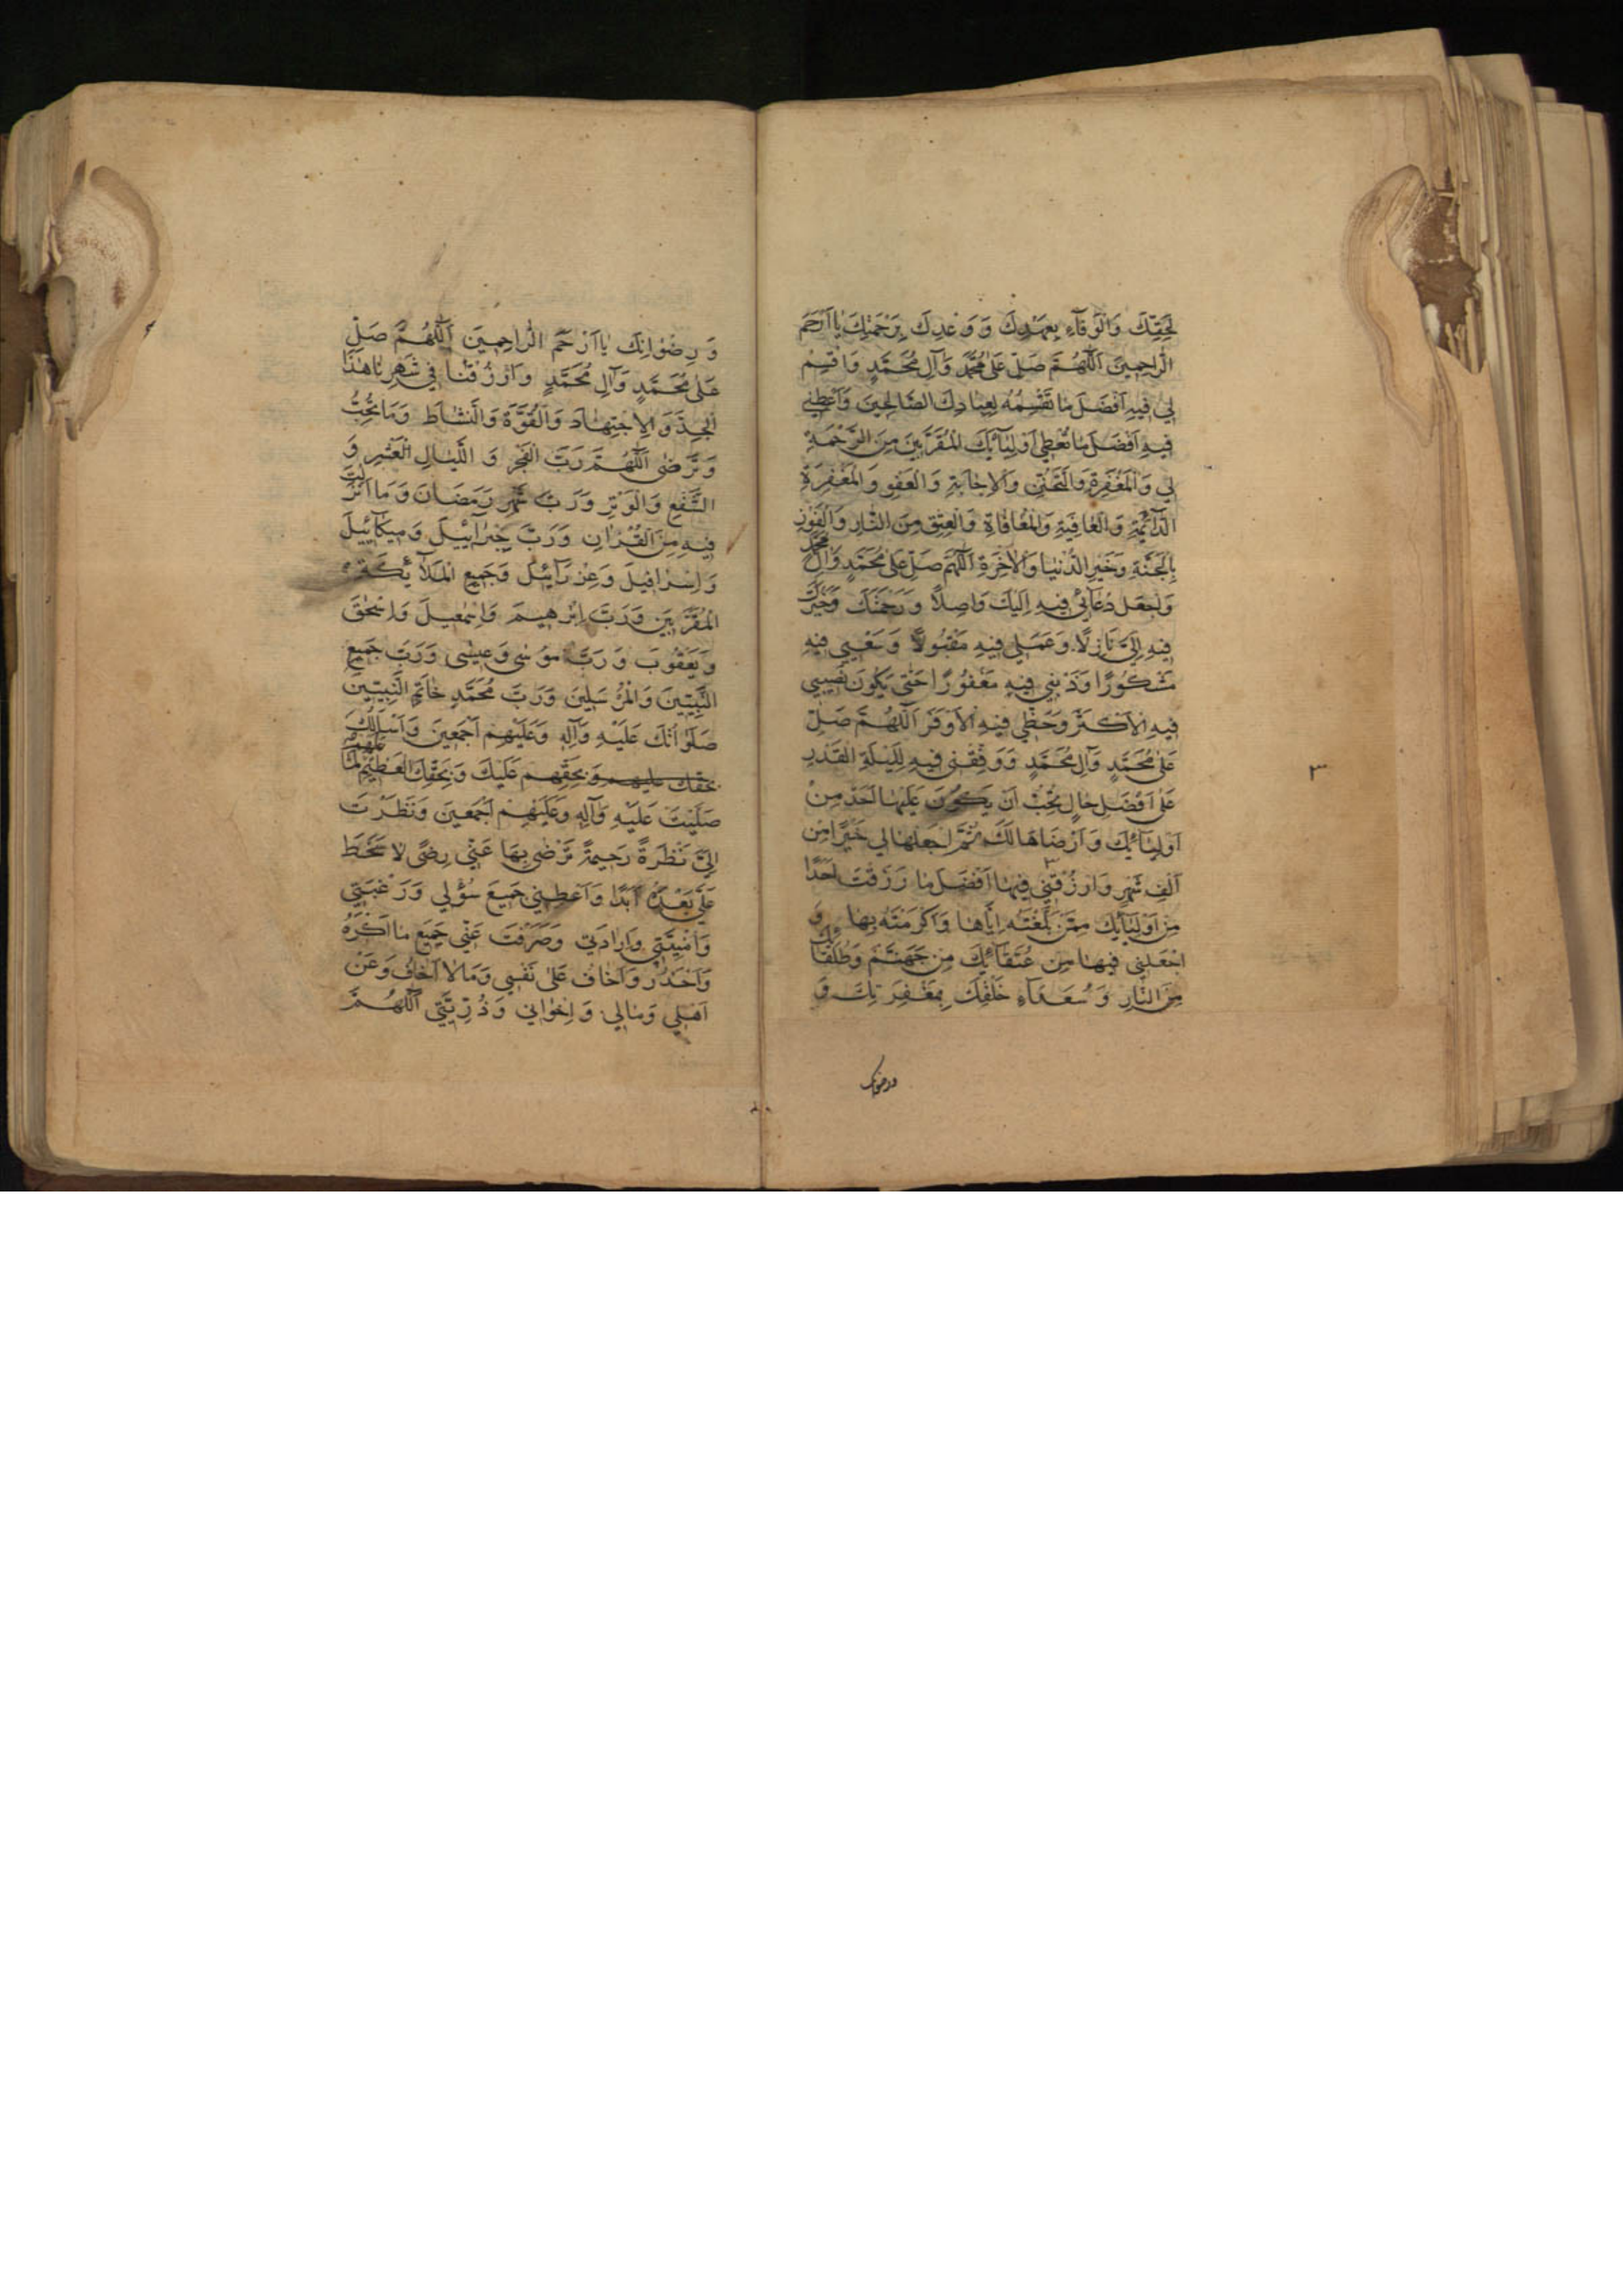 لِحَقِّكَ وَالْوَفَآءِ بِعَهْدِكَ وَ وَعْدِكَ بِرَحْمَتِكَ يَا اَرْحَمَ
الرَّاحِمِينَ اَللّٰهُمَّ صَلِّ عَلٰى مُحَمَّدٍ وَآلِ مُحَمَّدٍ وَاقْسِمْ
لِي فِيهِ اَفْضَلَ مَا تَقْسِمُهُ لِعِبَادِكَ الصَّالِحِينَ وَاَعْطِنِي
فِيهِ اَفْضَلَ مَا تُعْطِي اَوْلِيَآئَكَ الْمُقَرَّبِينَ مِنَ الرَّحْمَةِ
لِي وَالْمَغْفِرَةِ وَالتَّحَنُّنِ وَالْاِجَابَةِ وَالْعَفْوِ وَالْمَغْفِرَةِ
الدَّآئِمَةِ وَالْعَافِيَةِ وَالْمُعَافَاةِ وَالْعِتْقِ مِنَ النَّارِ وَالْفَوْزِ
بِالْجَنَّةِ وَخَيْرِ الدُّنْيَا وَالْاٰخِرَةِ اَللّٰهُمَّ صَلِّ عَلٰى مُحَمَّدٍ وَآلِ مُحَمَّدٍ
وَاجْعَلْ دُعَآئِي فِيهِ اِلَيْكَ وَاصِلًا وَ رَحْمَتَكَ وَخَيْرَكَ
فِيهِ اِلَيَّ نَازِلًا وَعَمَلِي فِيهِ مَقْبُولًا وَ سَعْيِي فِيهِ
مَشْكُورًا وَذَنْبِي فِيهِ مَغْفُورًا حَتّٰى يَكُونَ نَصِيبِي
فِيهِ الْاَكْثَرَ وَحَظِّي فِيهِ الْاَوْفَرَ اَللّٰهُمَّ صَلِّ
عَلٰى مُحَمَّدٍ وَآلِ مُحَمَّدٍ وَ وَفِّقْنِي فِيهِ لِلَيْلَةِ الْقَدْرِ
عَلٰى اَفْضَلِ حَالٍ تُحِبُّ اَنْ يَكُونَ عَلَيْهَا اَحَدٌ مِنْ
٣
اَوْلِيَآئِكَ وَ اَرْضَاهَا لَكَ ثُمَّ اجْعَلْهَا لِي خَيْرًا مِنْ
اَلْفِ شَهْرٍ وَارْزُقْنِي فِيهَا اَفْضَلَ مَا رَزَقْتَ اَحَدًا
مِنْ اَوْلِيَآئِكَ مِمَّنْ بَلَّغْتَهُ اِيَّاهَا وَاَكْرَمْتَهُ بِهَا وَ
اجْعَلْنِي فِيهَا مِنْ عُتَقَآئِكَ مِنْ جَهَنَّمَ وَطُلَقَآئِكَ
مِنَ النَّارِ وَ سُعَدَآءِ خَلْقِكَ بِمَغْفِرَتِكَ وَ
ورضوانک
وَ رِضْوَانِكَ يَا اَرْحَمَ الرَّاحِمِينَ اَللّٰهُمَّ صَلِّ
عَلٰى مُحَمَّدٍ وَآلِ مُحَمَّدٍ وَارْزُقْنَا فِي شَهْرِنَا هٰذَا
الْجِدَّ وَالْاِجْتِهَادَ وَالْقُوَّةَ وَالنَّشَاطَ وَمَا تُحِبُّ
وَ تَرْضٰى اَللّٰهُمَّ رَبَّ الْفَجْرِ وَ اللَّيَالِ الْعَشْرِ وَ
الشَّفْعِ وَالْوَتْرِ وَ رَبَّ شَهْرِ رَمَضَانَ وَ مَا اَنْزَلْتَ
فِيهِ مِنَ الْقُرْاٰنِ وَرَبَّ جِبْرَآئِيلَ وَمِيكَآئِيلَ
وَ اِسْرَافِيلَ وَعِزْرَآئِيلَ وَجَمِيعِ الْمَلَآئِكَةِ
الْمُقَرَّبِينَ وَرَبَّ اِبْرٰهِيمَ وَاِسْمٰعِيلَ وَاِسْحٰقَ
وَيَعْقُوبَ وَ رَبَّ مُوسٰى وَعِيسٰى وَرَبَّ جَمِيعِ
النَّبِيِّينَ وَالْمُرْسَلِينَ وَرَبَّ مُحَمَّدٍ خَاتَمِ النَّبِيِّينَ
صَلَوَاتُكَ عَلَيْهِ وَآلِهِ وَعَلَيْهِمْ اَجْمَعِينَ وَاَسْئَلُكَ
بحقك عليهم وَبِحَقِّهِمْ عَلَيْكَ وَبِحَقِّكَ الْعَظِيمِ لَمَّا
صَلَّيْتَ عَلَيْهِ وَآلِهِ وَعَلَيْهِمْ اَجْمَعِينَ وَنَظَرْتَ
اِلَيَّ نَظْرَةً رَحِيمَةً تَرْضٰى بِهَا عَنِّي رِضًى لَا سَخَطَ
عَلَيَّ بَعْدَهُ اَبَدًا وَاَعْطَيْتَنِي جَمِيعَ سُؤْلِي وَرَغْبَتِي
وَاُمْنِيَّتِي وَاِرَادَتِي وَصَرَفْتَ عَنِّي جَمِيعَ مَا اَكْرَهُ
وَاَحْذَرُ وَاَخَافُ عَلٰى نَفْسِي وَمَا لَا اَخَافُ وَعَنْ
اَهْلِي وَمَالِي وَ اِخْوَانِي وَذُرِّيَّتِي اَللّٰهُمَّ